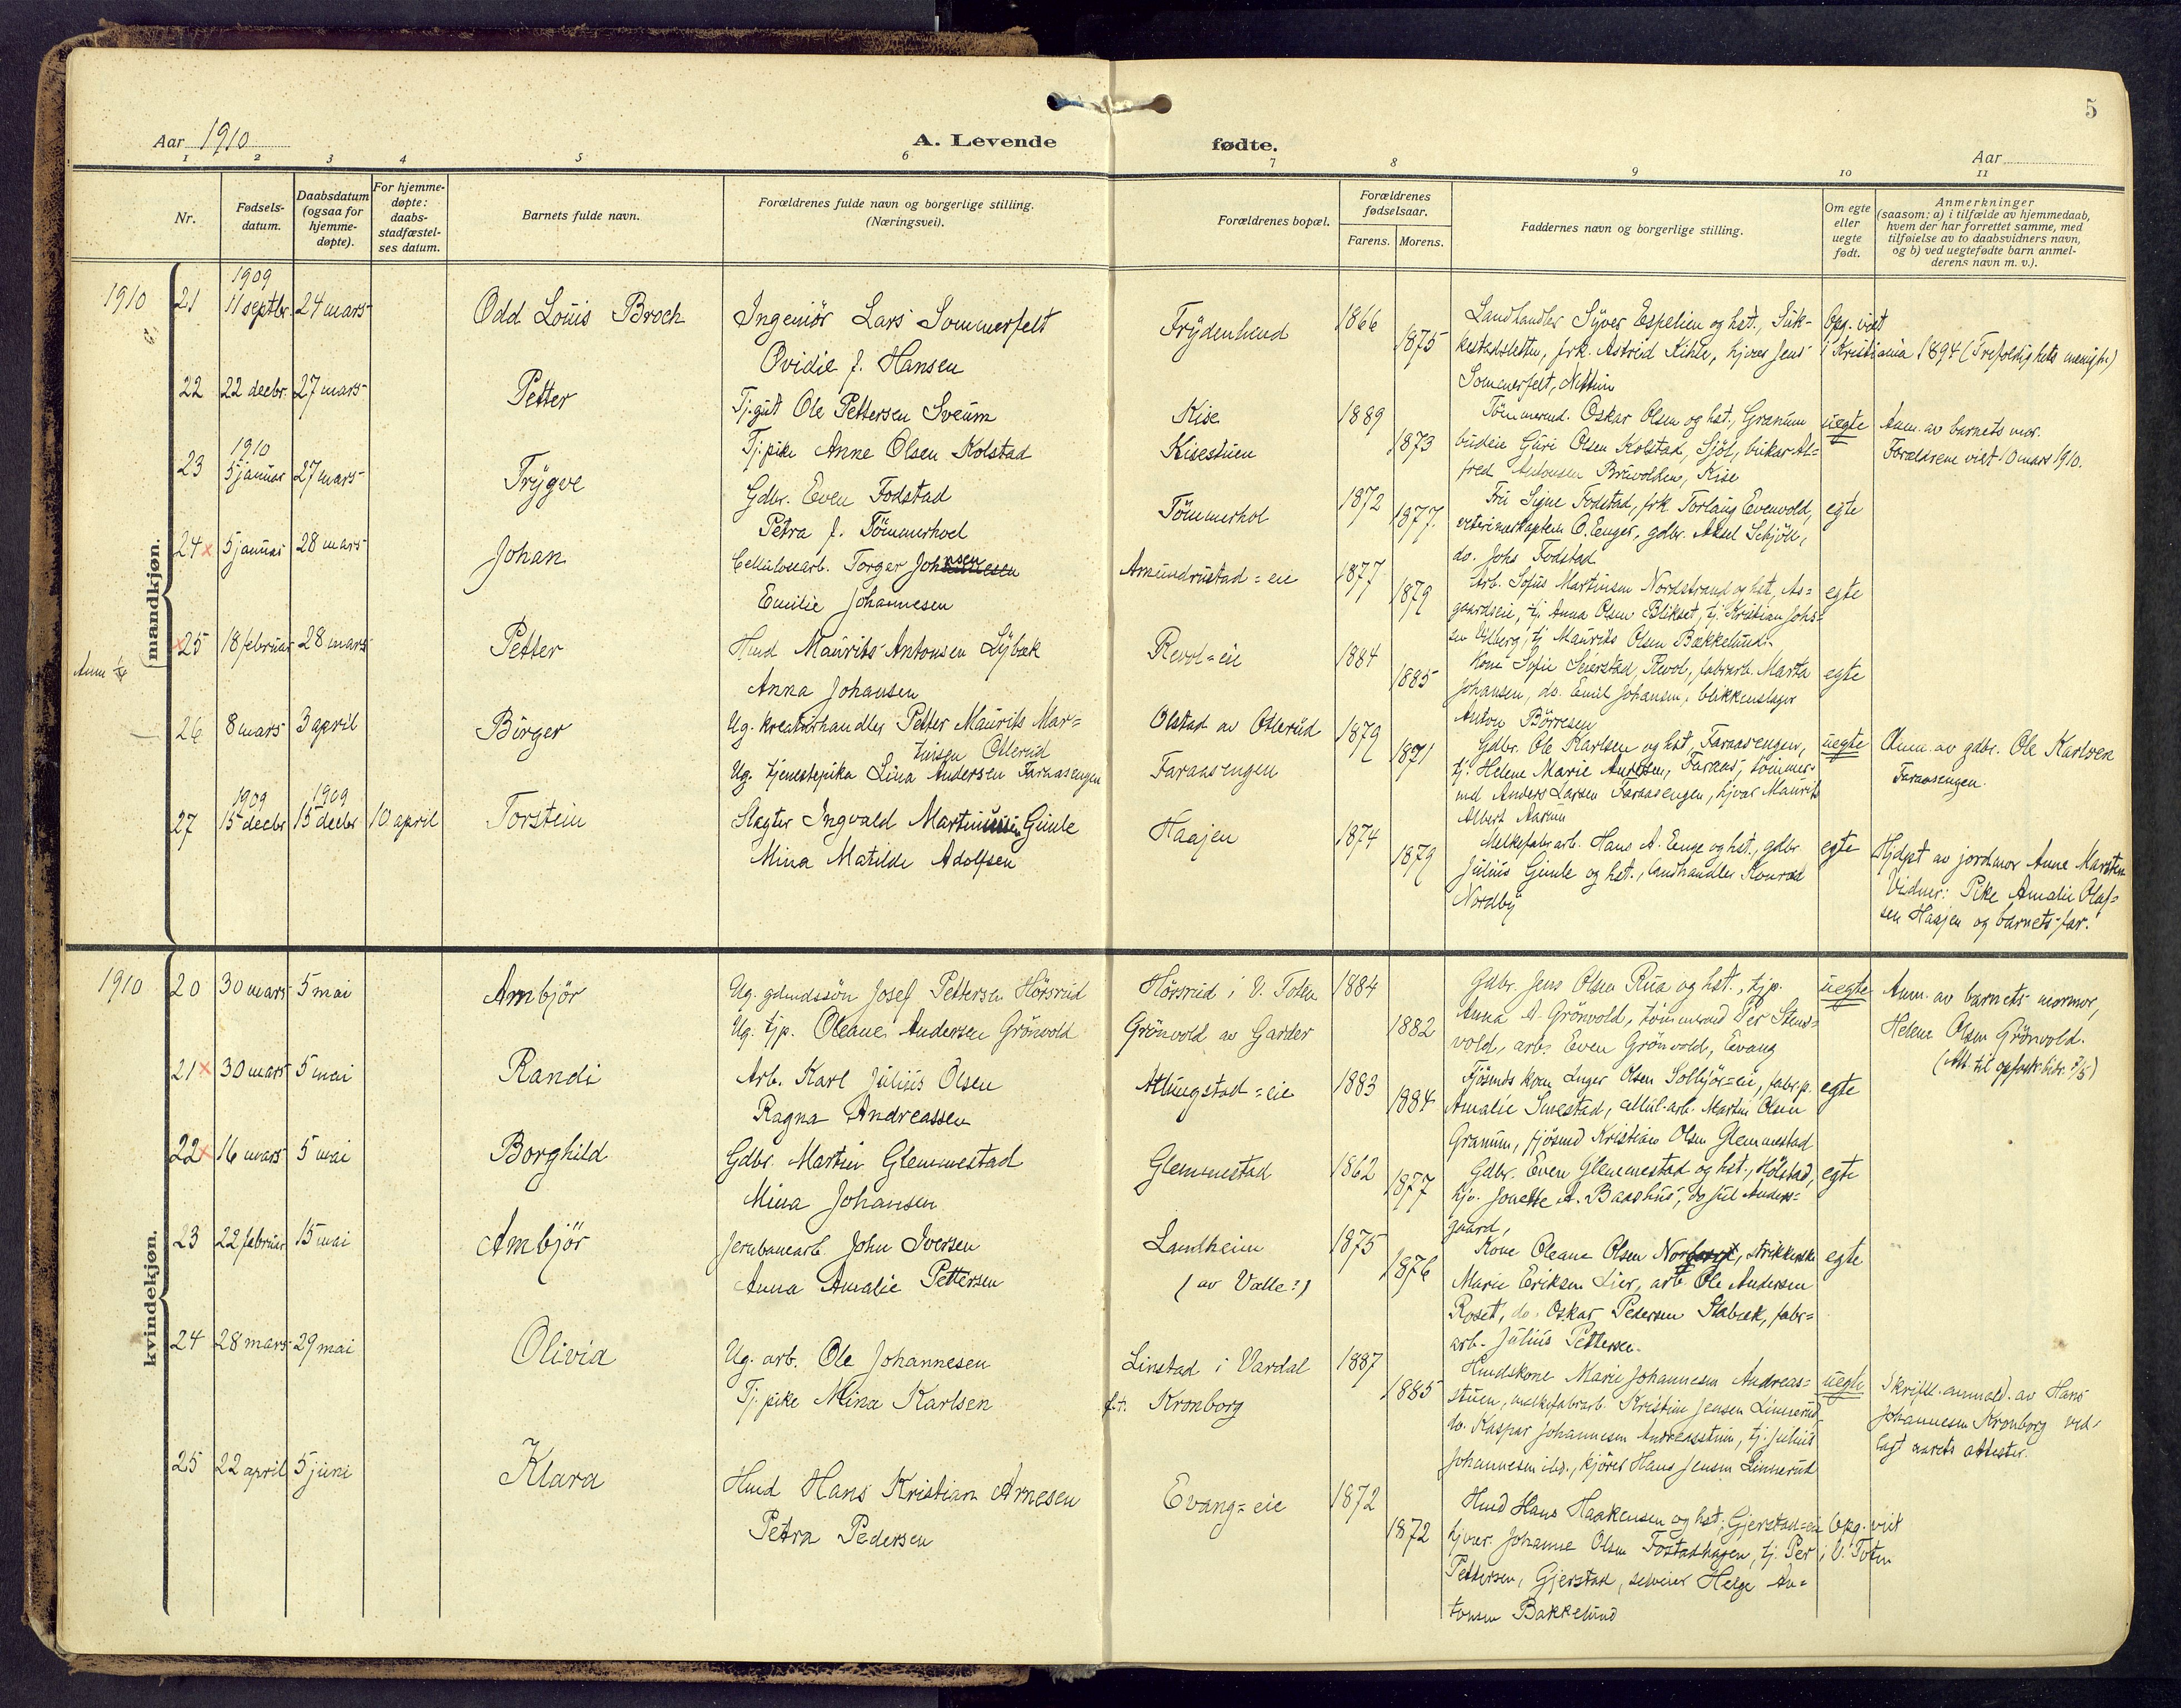 5
Aar 1910
A. Levende fødte.
Aar
1 2 3 4 5 6 7 8 9 10 11
Nr.
Fødsels-
datum.
Daabsdatum
(ogsaa for
hjemme-
døpte).
For hjemme-
døpte:
daabs-
stadfæstel-
ses datum.
Barnets fulde navn.
Forældrenes fulde navn og borgerlige stilling.
(Næringsvei).
Forældrenes bopæl.
Forældrenes
fødselsaar.
Farens. Morens.
Faddernes navn og borgerlige stilling.
Om egte
eller
uegte
født.
Anmerkninger
(saasom: a) i tilfælde av hjemmedaab,
hvem der har forrettet samme, med
tilføielse av to daabsvidners navn,
og b) ved uegtefødte barn anmel-
derens navn m. v.).
mandkjøn.
1910 21
1909
11 septbr. 24 mars
Odd Louis Broch
Ingeniör Lars Sommerfelt
Ovidie f. Hansen
Frydenlund
1866
1875
Landhandler Syver Espelien og hst., Sik-
kestadsletten, frk. Astrid Kihle, hjvær. Jens
Sommerfelt, Nettum
Opg. viet
i Kristiania 1894 (Trefoldighets menigh.)
22 22 decbr. 27 mars
Petter
Tj.gut Ole Pettersen Sveum
Tj.pike Anne Olsen Kolstad
Kise
Kisestuen
1889
1873
Tömmermd. Oskar Olsen og hst., Granum
budeie Guri Olsen Kolstad, Sjöl, bukar Al-
fred Antonsen Bruvolden, Kise
uegte
Anm. av barnets mor.
Forældrene viet 10 mars 1910.
23
1910
5 januar 27 mars
Trygve
Gdbr. Even Fodstad
Petra f. Tömmerhol
Tömmerhol
1872
1877.
Fru Signe Fodstad, frk. Torlaug Evenvold,
veterinærkaptein O. Enger, gdbr. Aksel Schjöll,
do. Johs Fodstad
egte
24 x 5 januar 28 mars
Johan
Cellulosearb. Torger Johansen
Emilie Johannesen
Amundrustad = eie
1877
1879
Arb. Sofus Martinsen Nordstrand og hst, As-
gaardseie, tj. Anna Olsen Blikset, tj. Kristian Johs-
sen Vilberg, tj Maurits Olsen Bækkelund.
egte
x 25 18 februar 28 mars
Petter
Hmd Maurits Antonsen Lybæk
Anna Johansen
Revol = eie
1884
1885
Kone Sofie Seierstad, Revol, fabrarb. Marta
Johansen, do. Emil Johansen, blikkenslager
Anton Börresen
egte
26 8 mars 3 april
Birger
Ug. kreaturhandler Petter Maurits Mar-
tinsen Olterud
Ug. tjenestepike Lina Andersen Faraasengen
Olstad av Olterud
Faraasengen
1879
1871
Gdbr. Ole Karlsen og hst, Faraasengen,
tj. Helene Marie Andersen, Faraas, tömmer-
md Anders Larsen Faraasengen, hjvær Maurits
Albert Aasum
uegte
Anm. av gdbr. Ole Karlsen
Faraasengen.
27
1909
15 decbr
1909
15 decbr 10 april
Torstein
Slagter Ingvald Martinsen Gimle
Mina Matilde Adolfsen
Haajen
1874
1879
Melkefabr.arb. Hans A. Enge og hst., gdbr.
Julius Gimle og hst., landhandler Konrad
Nordby
egte
Hjdøpt av jordmor Anne Karsten
Vidner: Pike Amalie Olaf-
sen Haajen og barnets far.
kvindekjøn.
1910 20 30 mars 5 mai
Ambjör
Ug. gdmdssön Josef Pettersen Hörsrud
Ug. tjp. Oleane Andersen Grönvold
Hörsrud i V. Toten
Grönvold av Garder
1884
1882
Gdbr. Jens Olsen Rua og hst., tjp.
Anna A. Grönvold, tömmermd Per Stens-
vold, arb. Even Grönvold, Evang
uegte
Anm. av barnets mormor,
Helene Olsen Grönvold.
21 x 30 mars 5 mai
Randi
Arb. Karl Julius Olsen
Ragna Andreassen
Alungstad = eie
1883
1884
Fjösmds kone Inger Olsen Solbjör=eie, fabr.p.
Amalie Smestad, cellul.arb. Martin Olsen
Granum, fjösmd Kristian Olsen Glemmestad
egte
22 x 16 mars 5 mai
Borghild
Gdbr. Martin Glemmestad
Mina Johansen
Glemmestad
1862
1877
Gdbr. Even Glemmestad og hst., Holstad,
hjv. Jonette A. Baashus, do Juel Anders-
gaard,
egte
23 22 februar 15 mai
Ambjör
Jernbanearb. John Iversen
Anna Amalie Pettersen
Landheim
(av Valle?)
1875
1876
Kone Oleane Olsen , strikkerske
Marie Eriksen Lier, arb Ole Andersen
Roset, do. Oskar Pedersen Stabæk, fabr-
arb. Julius Pettersen.
egte
24 28 mars 29 mai
Olivia
Ug. arb. Ole Johannesen
Tj. pike Mina Karlsen
Linstad i Vardal
f.t. Kronborg
1887
1885
Hmdskone Marie Johannesen Andreas-
stuen, melkefabrarb. Kristian Jensen Linnerud,
do. Kaspar Johannesen Andreasstuen, tj. Julius
Johannesen ibd., kjörer Hans Jensen Linnerud
uegte
Skriftl. anmeld. av Hans
Johannesen Kronborg ved-
lagt aarets attester.
25 22 april 5 juni
Klara
Hmd Hans Kristian Arnesen
Petra Pedersen
Evang = eie
1872
1872
Hmd Hans Haakensen og hst, Gjerstad=eie
hjvær. Johanne Olsen Fostadhagen, tj. Per
Pettersen, Gjerstad, selveier Helge An-
tonsen Bakkelund
Opg. viet
i V. Toten